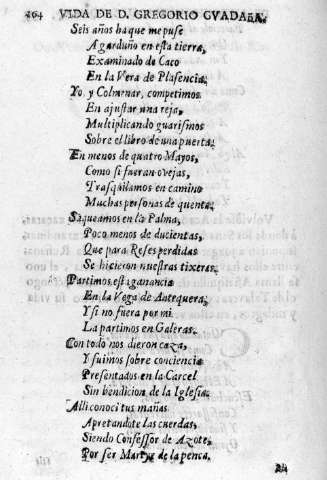 264 VIDA DE D. GREGORIO GVADAÑA.
Seis años ha que me puse
A garduño en esta tierra,
Examinado de Caco
En la Vera de Plasencia.
Yo, y Colmenar, competimos
En ajustar una reja,
Multiplicando guarismos
Sobre el libro de una puerta.
En menos de quatro Mayos,
Como si fueran ovejas,
Trasquilamos en camino
Muchas personas de quenta.
Saqueamos en la Palma,
Poco menos de ducientas,
Que para Reses perdidas
Se hicieron nuestras tixeras.
Partimos esta ganancia
En la Vega de Antequera,
Y si no fuera por mi
La partimos en Galeras.
Con todo nos dieron caza,
Y fuimos sobre conciencia
Presentados en la Carcel
Sin bendicion de la Iglesia.
Alli conoci tus mañas
Apretandote las cuerdas,
Siendo Confessor de Azote,
Por ser Martyr de la penca.